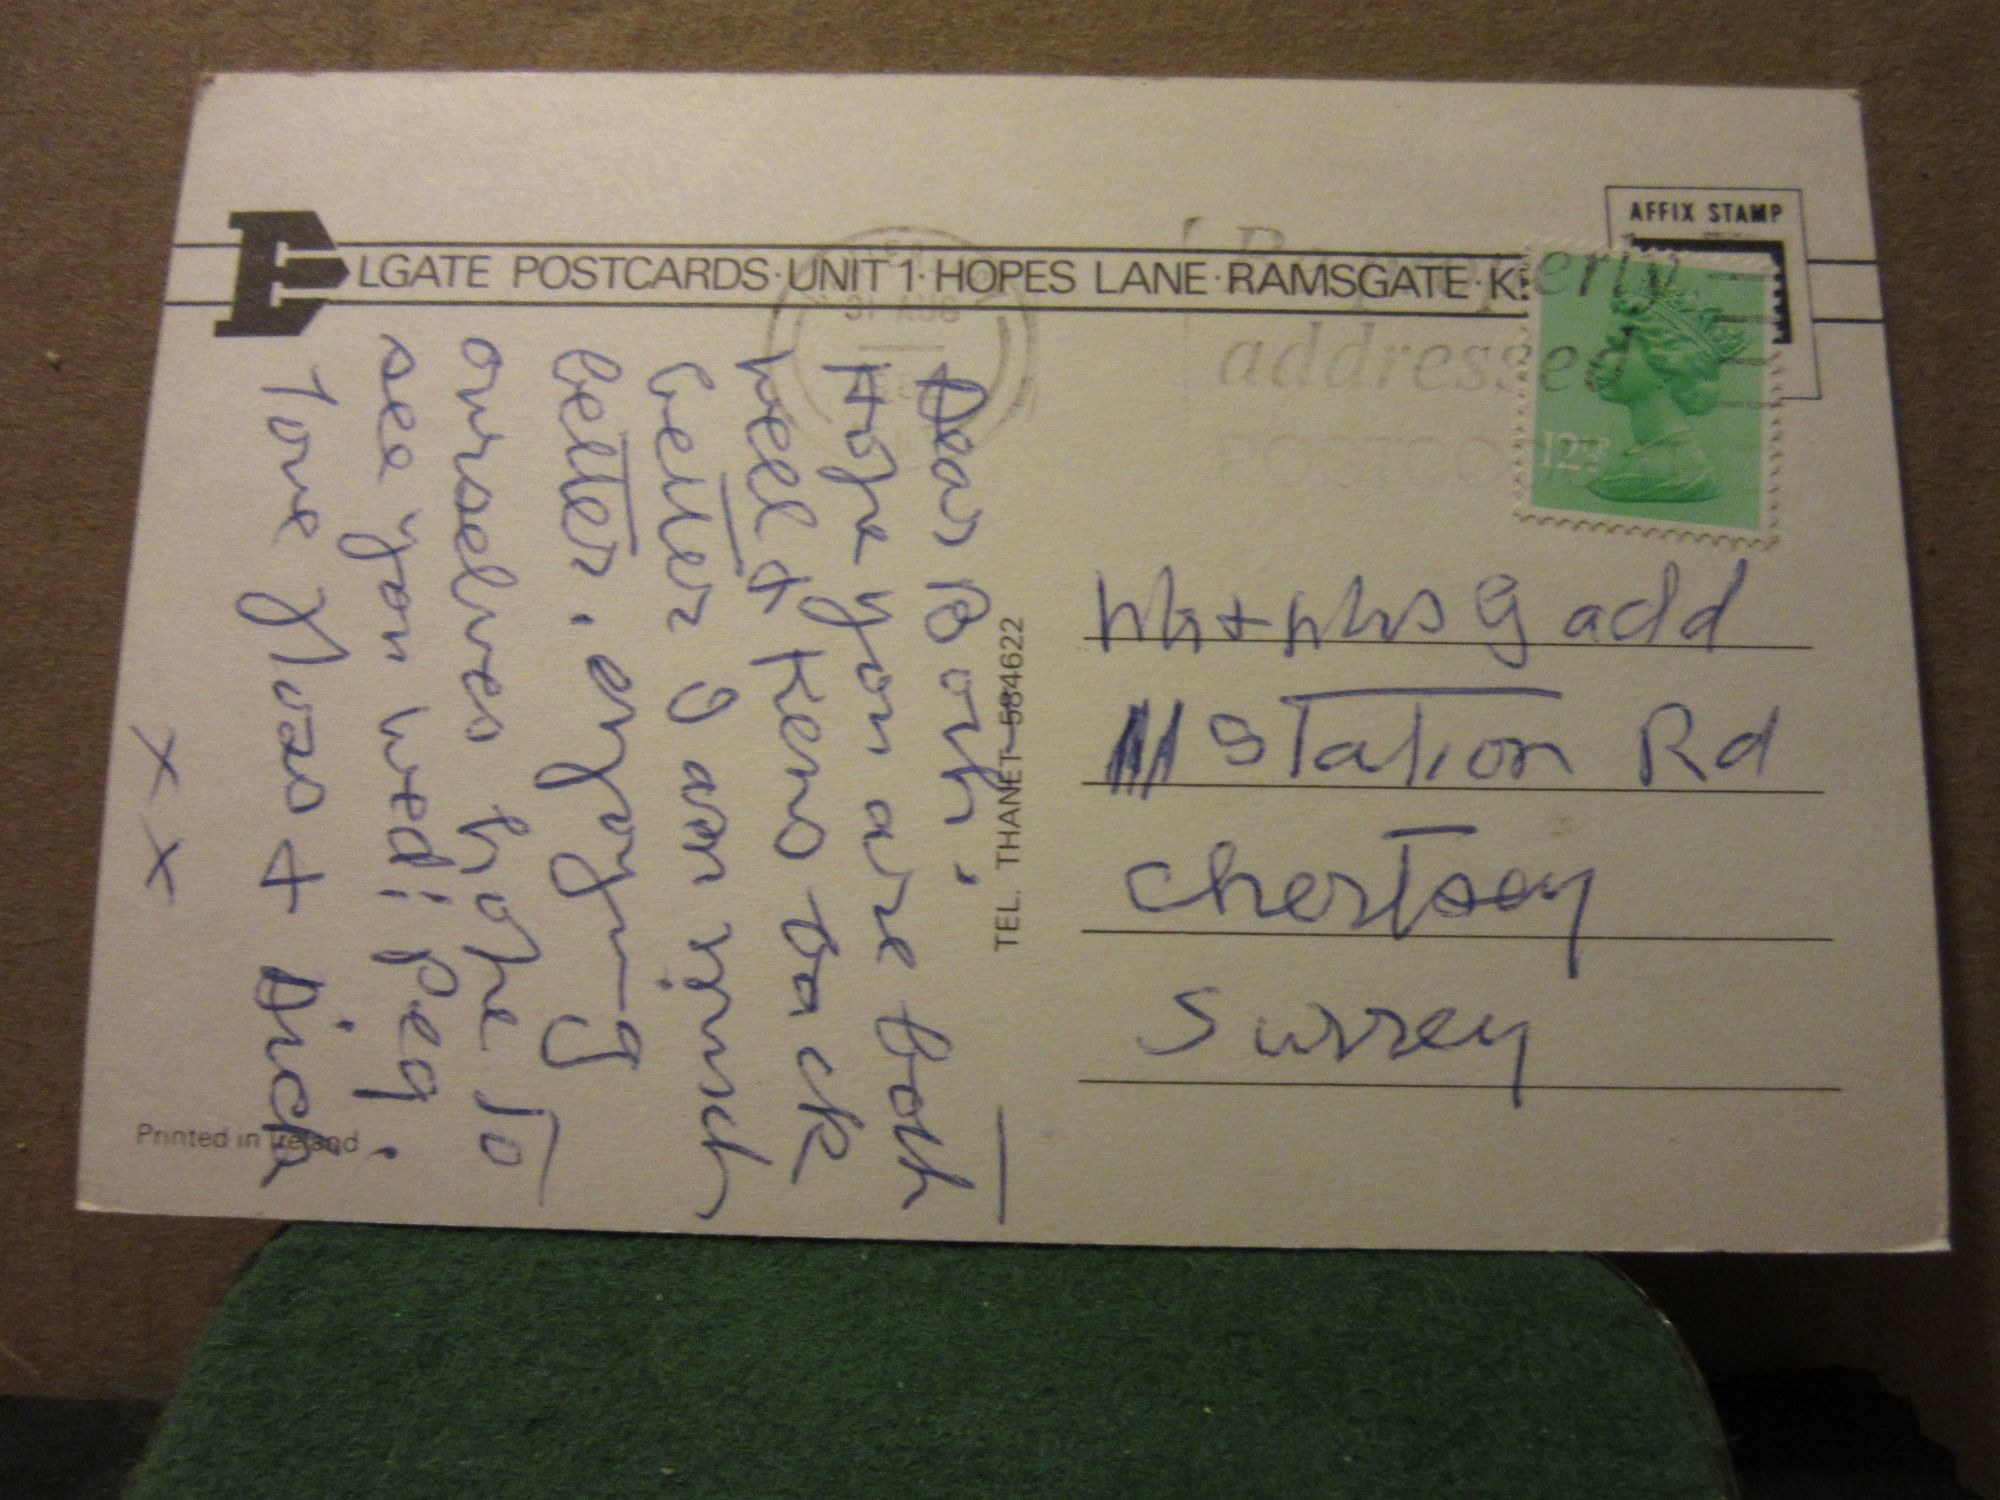 ELGATE POSTCARDS·UNIT 1·HOPES LANE·RAMSGATE·K
AFFIX STAMP
31 AUG
Be properly
addressed
POSTCODE
12½P
Dear Both.
Hope you are both
well + Kens back
better I am much
better. enjoying
ourselves hope to
see you wed: Peg.
love + Dick
x x
TEL. THANET 584622
Mr + Mrs Gadd
111 Station Rd
Chertsey
Surrey
Printed in Ireland